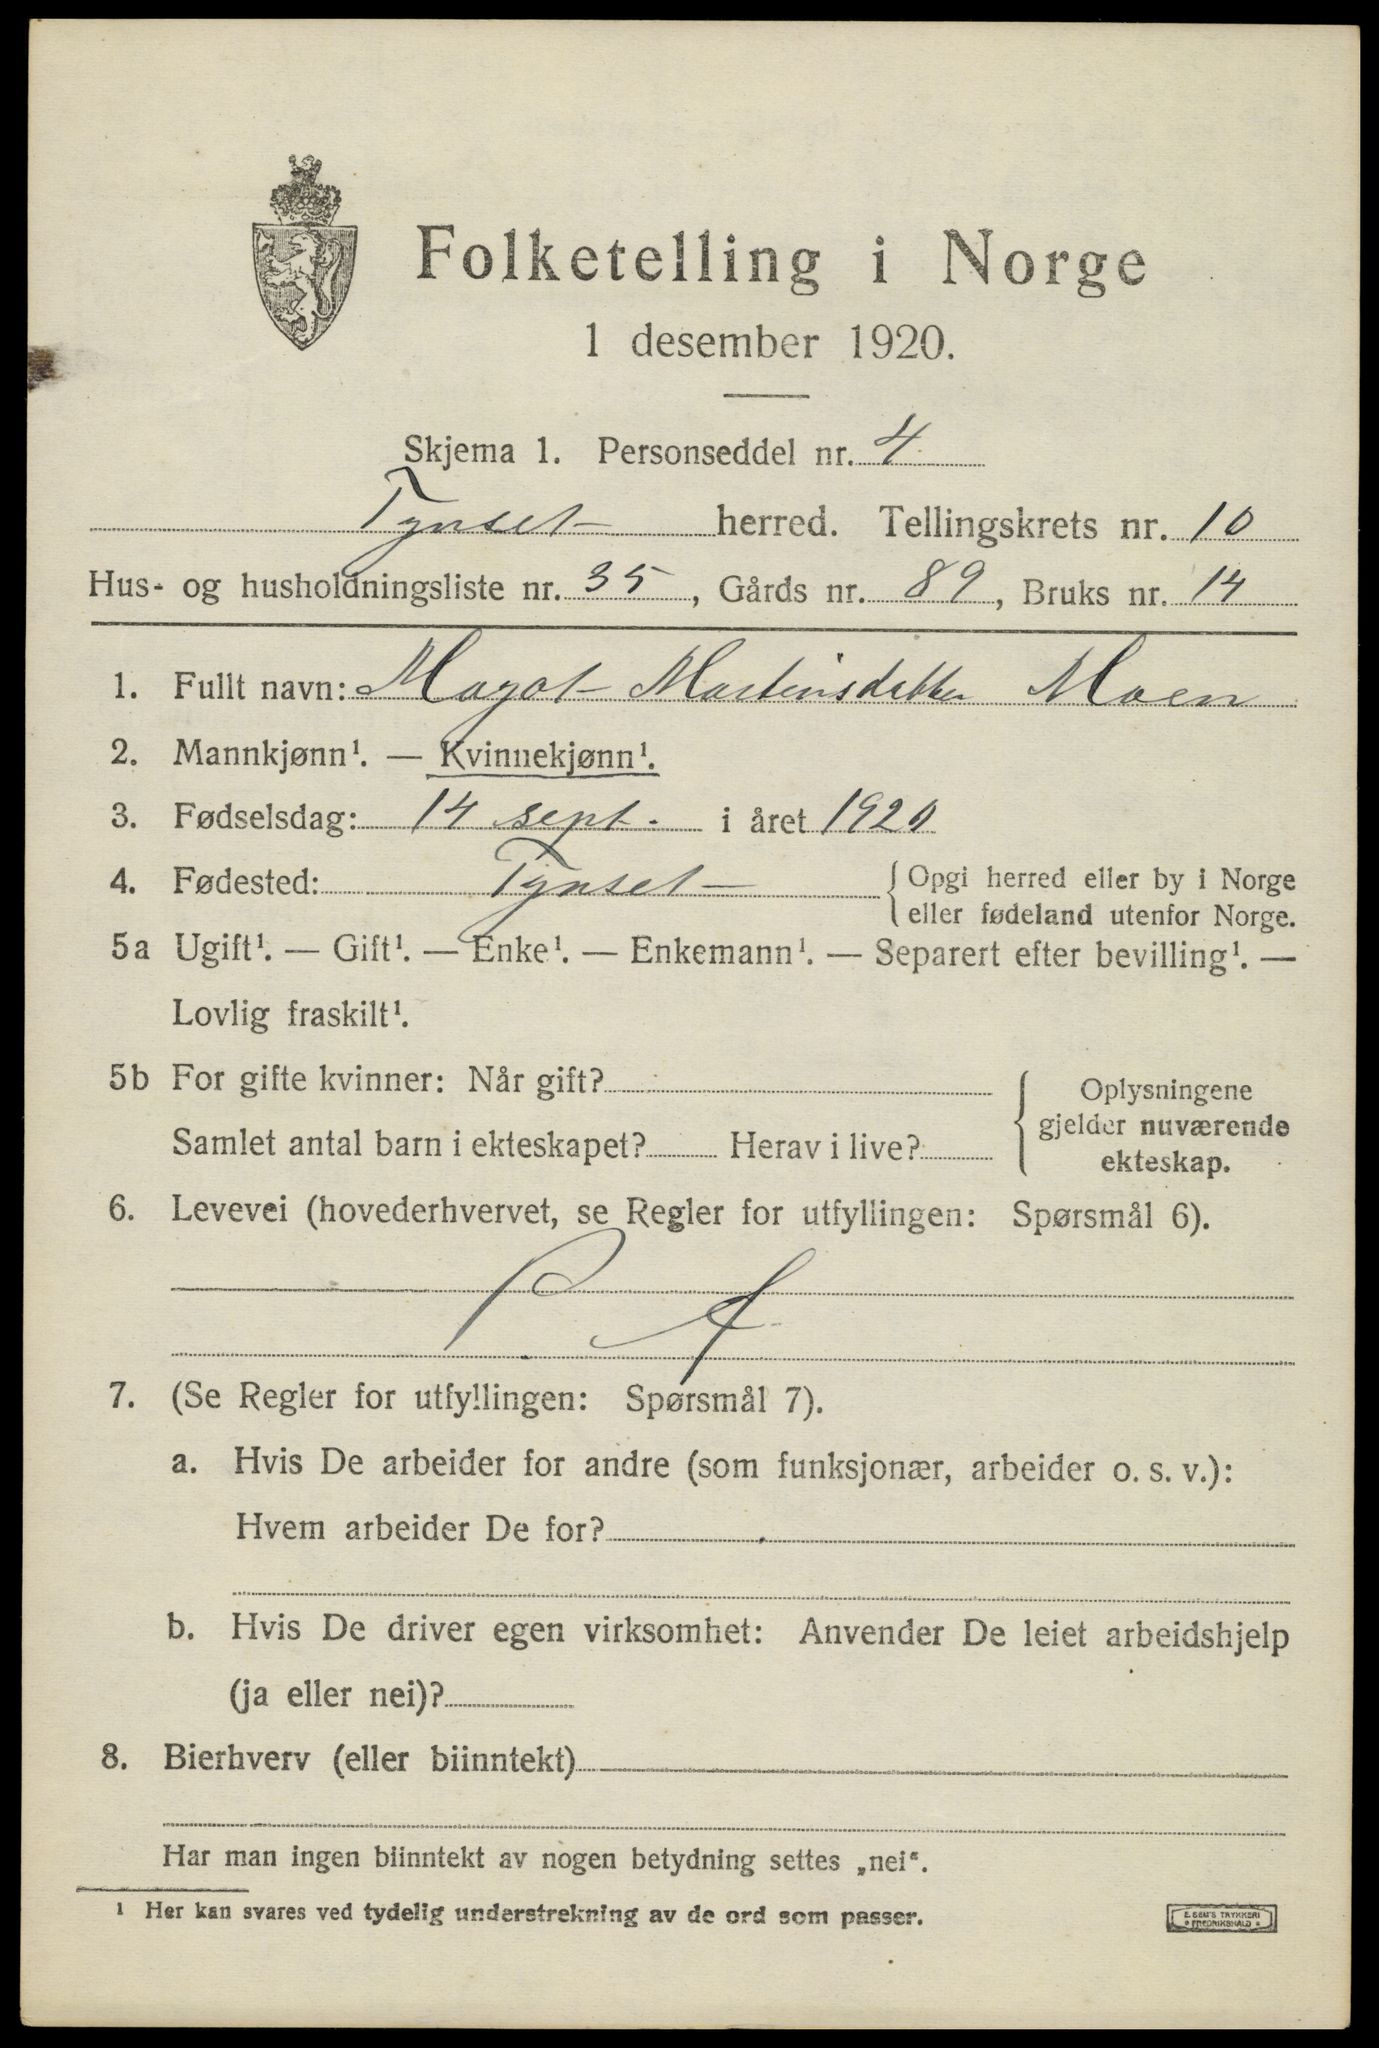 Folketelling i Norge
1 desember 1920.
Skjema 1. Personseddel nr. 4
Tynset herred. Tellingskrets nr. 10
Hus- og husholdningsliste nr. 35, Gårds nr. 89, Bruks nr. 14
1. Fullt navn: Magot Martinsdatter Moen
2. Mannkjønn¹. — Kvinnekjønn¹.
3. Fødselsdag: 14 sept. i året 1920
4. Fødested: Tynset { Opgi herred eller by i Norge
eller fødeland utenfor Norge.
5a Ugift¹. — Gift¹. — Enke¹. — Enkemann¹. — Separert efter bevilling¹. —
Lovlig fraskilt¹.
5b For gifte kvinner: Når gift?
Samlet antal barn i ekteskapet? Herav i live?
{ Oplysningene
gjelder nuværende
ekteskap.
6. Levevei (hovederhvervet, se Regler for utfyllingen: Spørsmål 6).
7. (Se Regler for utfyllingen: Spørsmål 7).
a. Hvis De arbeider for andre (som funksjonær, arbeider o. s. v.):
Hvem arbeider De for?
b. Hvis De driver egen virksomhet: Anvender De leiet arbeidshjelp
(ja eller nei)?
8. Bierhverv (eller biinntekt)
Har man ingen biinntekt av nogen betydning settes „nei“.
¹ Her kan svares ved tydelig understrekning av de ord som passer.
E. SEM'S TRYKKERI
FREDRIKSHALD